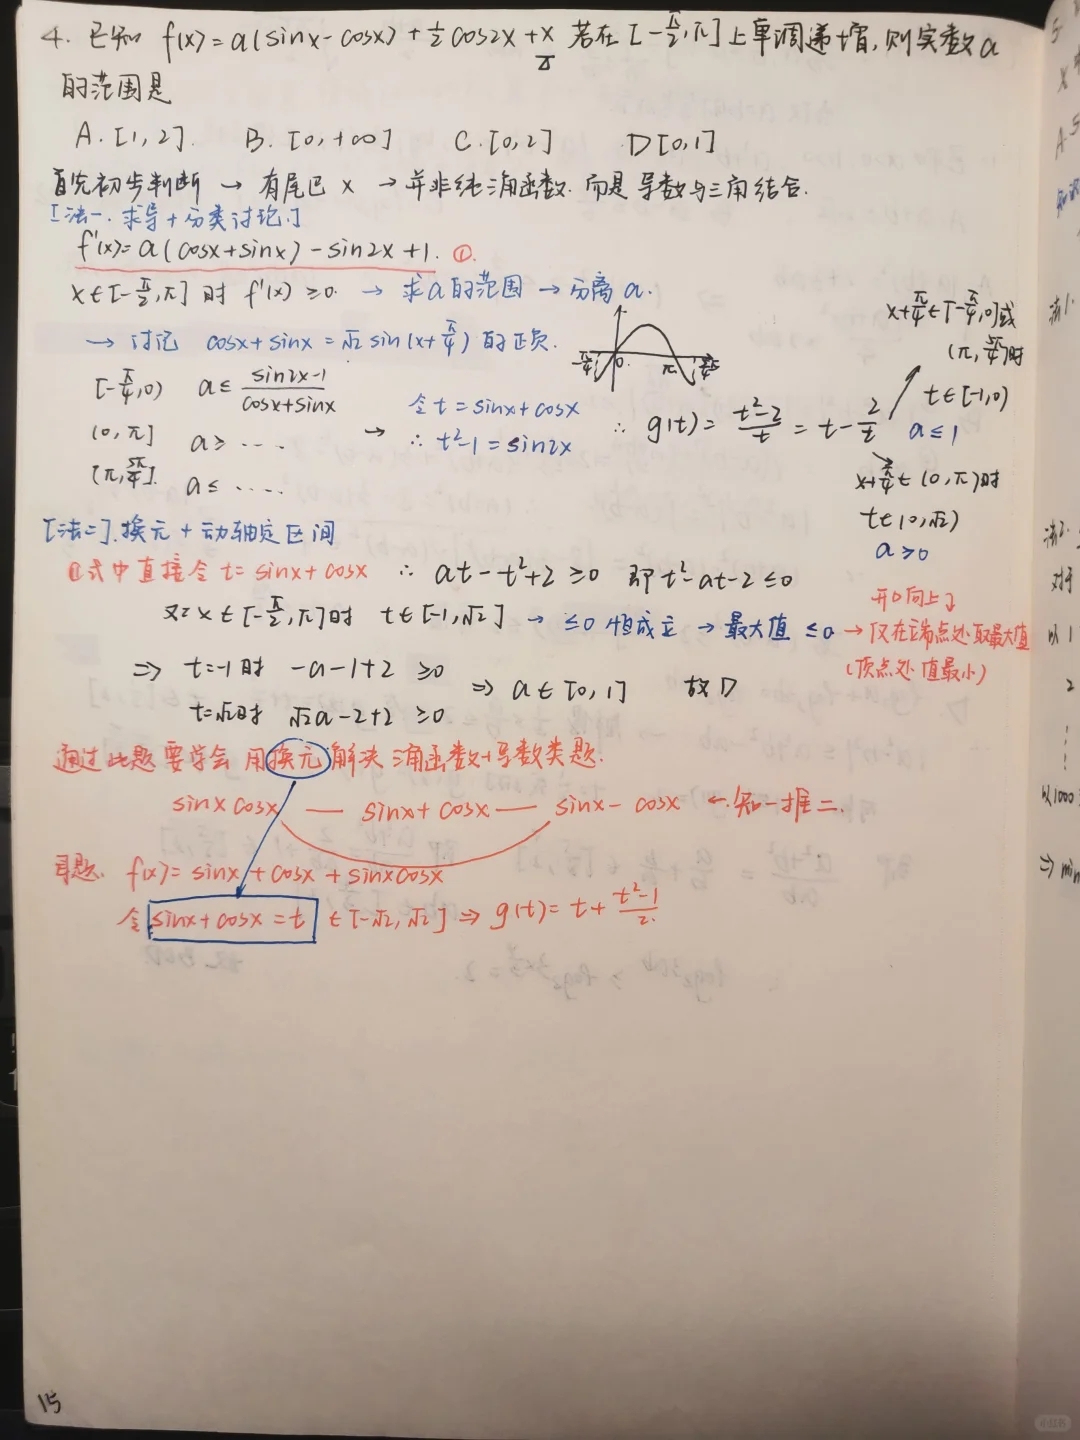 4. 已知 f(x)=a(sinx-cosx)+½cos2x+x 若在[-π/2,π]上单调递增,则实数a
的范围是
A.[1,2]. B.[0,+∞] C.[0,2] D[0,1]
首先初步判断 → 有尾巴 x → 并非纯三角函数. 而是 导数与三角结合.
[法一. 求导+分类讨论.]
f'(x)=a(cosx+sinx)-sin2x+1. ①.
x∈[-π/2,π]时 f'(x)≥0. → 求a的范围 → 分离a.
→ 讨论 cosx+sinx=√2sin(x+π/4)的正负.
[-π/4,0) a≤ (sin2x-1)/(cosx+sinx)
(0,π] a≥ ....
(π,5π/4]. a≤ .....
→ 令t=sinx+cosx
∴ t²-1=sin2x
0 π
∴ g(t)= (t²-2)/t = t-2/t
x+π/4∈[-π/4,0]或
(π,5π/4)时
t∈[-1,0)
a≤1
x+π/4∈(0,π)时
t∈(0,√2)
a≥0
[法二].换元+动轴定区间
①式中直接令t=sinx+cosx ∴ at-t²+2≥0 即t²-at-2≤0
又∵x∈[-π/2,π]时 t∈[-1,√2] → ≤0恒成立 → 最大值≤0 → 仅在端点处取最大值
开口向上
(顶点处值最小)
⇒ t=-1时 -a-1+2≥0
t=√2时 √2a-2+2≥0
⇒ a∈[0,1] 故D
通过此题要学会用换元解决三角函数+导数类题.
sinxcosx — sinx+cosx — sinx-cosx ← 知一推二.
f(x)=sinx+cosx+sinxcosx
令 sinx+cosx=t t∈[-√2,√2] ⇒ g(t)=t+(t²-1)/2.
15